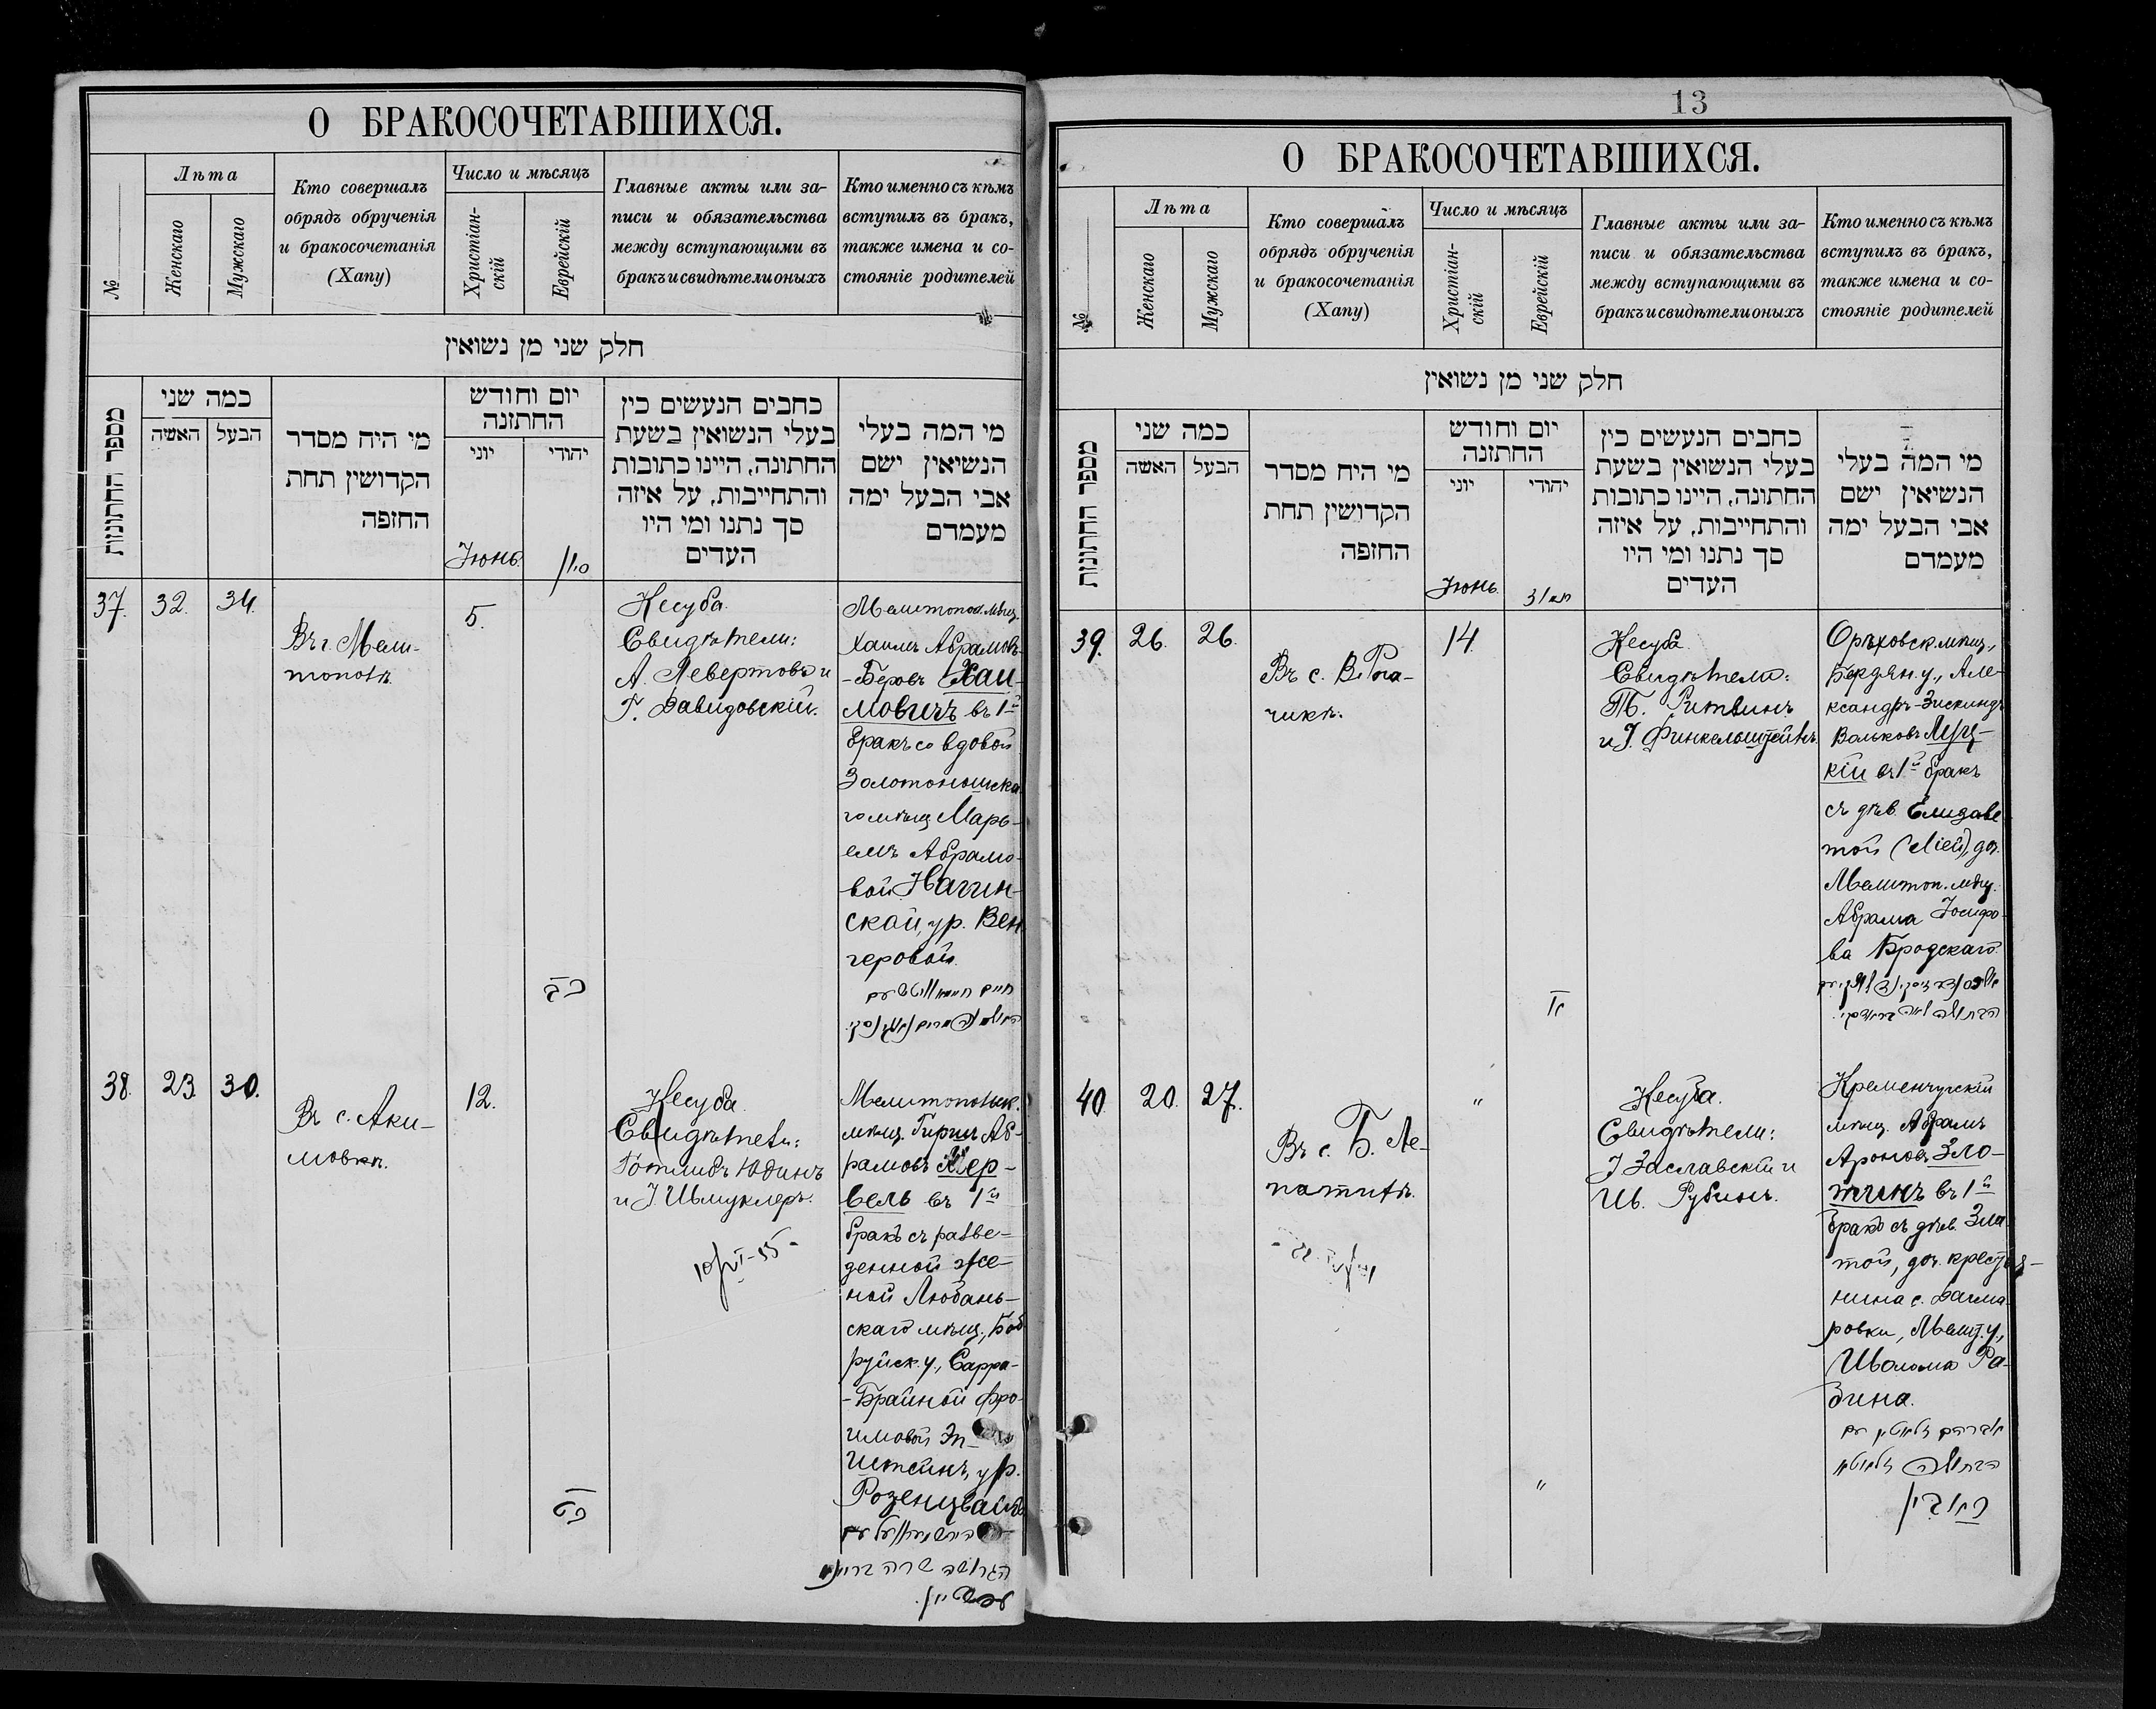 О БРАКОСОЧЕТАВШИХСЯ.
№
Лѣта
Женскаго
Мужскаго
Кто совершалъ
обрядъ обрученія
и бракосочетанія
(Хапу)
Число и мѣсяцъ
Христіан-
скій
Еврейскій
Главные акты или за-
писи и обязательства
между вступающими въ
бракъ и свидѣтели оныхъ
Кто именно съ кѣмъ
вступилъ въ бракъ,
также имена и со-
стояніе родителей
חלק שני מן נשואין
מספר החתונות
כמה שני
האשה
הבעל
מי היה מסדר
הקדושין תחת
החופה
יום וחודש
החתונה
יוני
יהודי
Іюнь.
סיון
כתבים הנעשים בין
בעלי הנשואין בשעת
החתונה, היינו כתובות
והתחייבות, על איזה
סך נתנו ומי היו
העדים
מי המה בעלי
הנשיאין ישם
אבי הבעל ימה
מעמדם
37.
32.
34.
Въ г. Мели-
тополѣ.
5.
כב
Кесуба.
Свидѣтели:
А. Левертовъ и
Г. Давидовскій.
Мелитопол. мѣщ.
Хаимъ Абрамовъ-
-Беровъ Хаи-
мовичъ въ 1й
бракъ со вдовой
Золотоношска
го мѣщ Марь-
емъ Абрамо-
вой Нагин-
ской, ур. Вен
геровой.
38.
23.
30.
Въ с. Аки-
мовкѣ.
12.
כט
Кесуба.
Свидѣтели:
Готлибъ Юдинъ
и І. Шмуклеръ.
Мелитопольск.
мѣщ. Гиршъ Аб-
рамовъ Жер-
вель въ 1й
бракъ съ разве-
денной же-
ной Любань-
скаго мѣщ., Боб
руйск. у., Сарра-
-Брайной Фро-
имовой Эп-
штейнъ, ур.
Розенцвайгъ
הגרושה שרה בריינע
עפשטיין.
13
О БРАКОСОЧЕТАВШИХСЯ.
№
Лѣта
Женскаго
Мужскаго
Кто совершалъ
обрядъ обрученія
и бракосочетанія
(Хапу)
Число и мѣсяцъ
Христіан-
скій
Еврейскій
Главные акты или за-
писи и обязательства
между вступающими въ
бракъ и свидѣтели оныхъ
Кто именно съ кѣмъ
вступилъ въ бракъ,
также имена и со-
стояніе родителей
חלק שני מן נשואין
מספר החתונות
כמה שני
האשה
הבעל
מי היה מסדר
הקדושין תחת
החופה
יום וחודש
החתונה
יוני
יהודי
Іюнь.
תמוז
כתבים הנעשים בין
בעלי הנשואין בשעת
החתונה, היינו כתובות
והתחייבות, על איזה
סך נתנו ומי היו
העדים
מי המה בעלי
הנשיאין ישם
אבי הבעל ימה
מעמדם
39.
26.
26.
Въ с. В. Рога-
чикѣ.
14.
Кесуба.
Свидѣтели:
Т. Ритвинъ
и І. Финкельштейнъ.
Орѣховск. мѣщ.,
Бердян. у., Але-
ксандръ-Зискиндъ
Вольковъ Луц-
кій въ 1й бракъ
съ дѣв. Елизаве
той (Ліей), доч.
Мелитоп. мѣщ.
Абрама Іосифо-
ва Бродскаго.
הבתולה לאה בראדסקי.
40.
20.
27.
Въ с. Б. Ле-
патихѣ.
"
"
Кесуба.
Свидѣтели:
І. Заславскій и
Ш. Рубинъ.
Кременчугскій
мѣщ. Абрамъ
Ароновъ Зло-
тинъ въ 1й
бракъ съ дѣв. Зла-
той, доч. крестья-
нина с. Дагма-
ровки, Мелит. у.,
Шолома Ра-
бина.
אברהם זלאטין עם
הבתולה זלאטע
ראבין